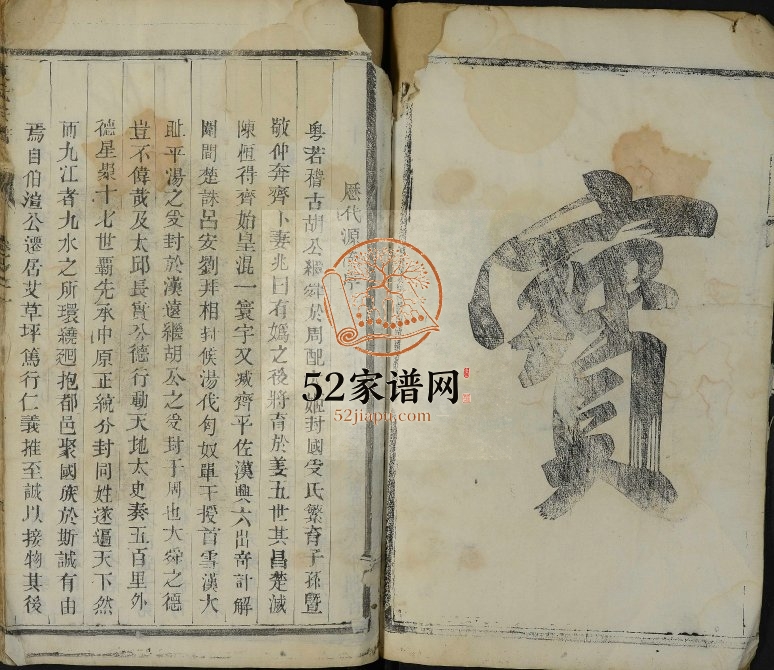 寶
歷代源
粵若稽古胡公繼舜於周配姬封國受氏繁育子孫暨
敬仲奔齊卜妻兆曰有媯之後將育於姜五世其昌楚滅
陳恒得齊始皇混一寰宇又滅齊平佐漢興六出奇計解
圍間楚誅呂安劉拜相封候湯伐匈奴單于授首雪漢大
恥平湯之受封於漢遠繼胡公之受封于周也大舜之德
豈不偉哉及太邱長寔公德行動天地太史奏五百里外
德星聚十七世霸先承中原正統分封同姓遂遍天下然
而九江者九水之所環繞迴抱都邑聚國族於斯誠有由
焉自伯渲公遷居艾草坪篤行仁義推至誠以接物其後
52家谱网
52jiapu.com